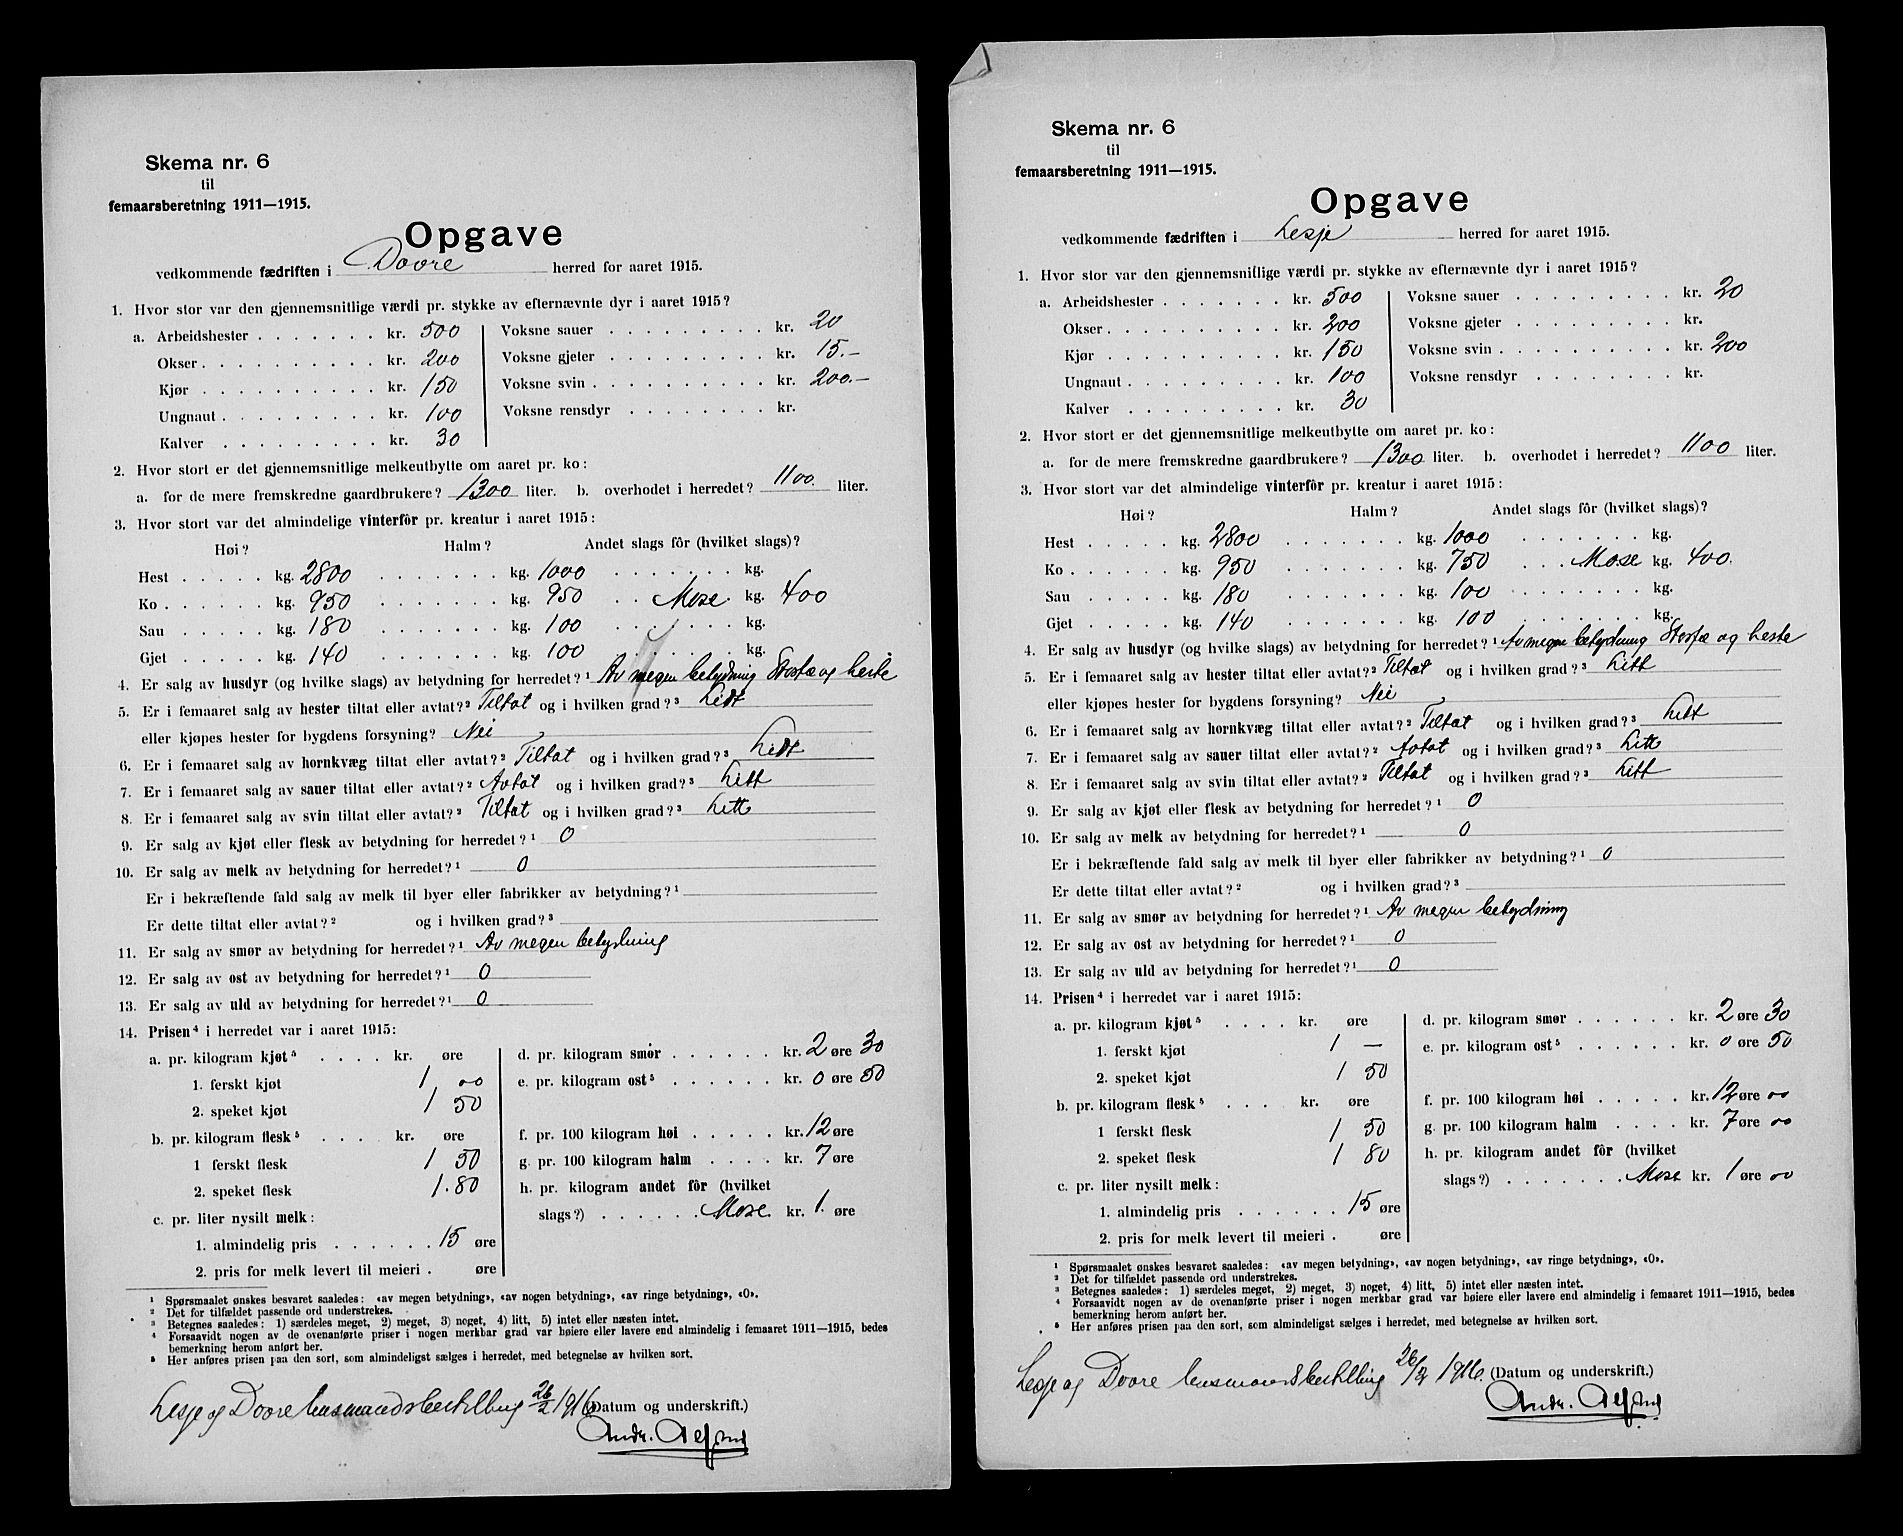 Skema nr. 6
til
femaarsberetning 1911—1915.
Opgave
vedkommende fædriften i Dovre herred for aaret 1915.
1. Hvor stor var den gjennemsnitlige værdi pr. stykke av efternævnte dyr i aaret 1915?
a. Arbeidshester . . . . . . . kr. 500 Voksne sauer . . . . . . . . . kr. 20
Okser . . . . . . . . . . kr. 200 Voksne gjeter . . . . . . . . . kr. 15.—
Kjør . . . . . . . . . . kr. 150 Voksne svin . . . . . . . . . . kr. 200.—
Ungnaut . . . . . . . . . kr. 100 Voksne rensdyr . . . . . . . . kr.
Kalver . . . . . . . . . kr. 30
2. Hvor stort er det gjennemsnitlige melkeutbytte om aaret pr. ko:
a. for de mere fremskredne gaardbrukere? 1300 liter. b. overhodet i herredet? 1100. liter.
3. Hvor stort var det almindelige vinterfôr pr. kreatur i aaret 1915:
Høi? Halm? Andet slags fôr (hvilket slags)?
Hest . . . . . kg. 2800 . . . . . . . kg. 1000 . . . . . . . kg.
Ko . . . . . . kg. 950 . . . . . . . kg. 950 . . Mose kg. 400
Sau . . . . . kg. 180 . . . . . . . kg. 100 . . . . . . . kg.
Gjet . . . . . kg. 140 . . . . . . . kg. 100 . . . . . . . kg.
4. Er salg av husdyr (og hvilke slags) av betydning for herredet?¹ Av megen betydning Storfæ og heste
5. Er i femaaret salg av hester tiltat eller avtat?² Tiltat og i hvilken grad?³ Lidt
eller kjøpes hester for bygdens forsyning? Nei
6. Er i femaaret salg av hornkvæg tiltat eller avtat?² Tiltat og i hvilken grad?³ Lidt
7. Er i femaaret salg av sauer tiltat eller avtat?² Avtat og i hvilken grad?³ Litt
8. Er i femaaret salg av svin tiltat eller avtat?² Tiltat og i hvilken grad?³ Litt
9. Er salg av kjøt eller flesk av betydning for herredet?¹ 0
10. Er salg av melk av betydning for herredet?¹ 0
Er i bekræftende fald salg av melk til byer eller fabrikker av betydning?¹
Er dette tiltat eller avtat?² og i hvilken grad?³
11. Er salg av smør av betydning for herredet?¹ Av megen betydning
12. Er salg av ost av betydning for herredet?¹ 0
13. Er salg av uld av betydning for herredet?¹ 0
14. Prisen⁴ i herredet var i aaret 1915:
a. pr. kilogram kjøt⁵ . . . . kr. øre d. pr. kilogram smør . . . . . . kr. 2 øre 30
1. ferskt kjøt 1,00 e. pr. kilogram ost⁵ . . . . . . kr. 0 øre 50
2. speket kjøt 1 50
b. pr. kilogram flesk⁵ . . . . kr. øre f. pr. 100 kilogram høi . . . . . kr. 12 øre
1 ferskt flesk 1 50 g. pr. 100 kilogram halm . . . . kr. 7 øre
2. speket flesk 1.80 h. pr. kilogram andet fôr (hvilket
c. pr. liter nysilt melk: slags?) . . . . . . Mose. kr. 1. øre
1. almindelig pris . . . . . . 15 øre
2. pris for melk levert til meieri . øre
¹ Spørsmaalet ønskes besvaret saaledes: «av megen betydning», «av nogen betydning», «av ringe betydning», «O».
² Det for tilfældet passende ord understrekes.
³ Betegnes saaledes: 1) særdeles meget, 2) meget, 3) noget, 4) litt, 5) intet eller næsten intet.
⁴ Forsaavidt nogen av de ovenanførte priser i nogen merkbar grad var høiere eller lavere end almindelig i femaaret 1911—1915, bedes
bemerkning herom anført her.
⁵ Her anføres prisen paa den sort, som almindeligst sælges i herredet, med betegnelse av hvilken sort.
Lesje og Dovre lensmandsbestilling 26/2 1916 (Datum og underskrift.)
Andr.
Skema nr. 6
til
femaarsberetning 1911—1915.
Opgave
vedkommende fædriften i Lesje herred for aaret 1915.
1. Hvor stor var den gjennemsnitlige værdi pr. stykke av efternævnte dyr i aaret 1915?
a. Arbeidshester . . . . . . . kr. 500 Voksne sauer . . . . . . . . . kr. 20
Okser . . . . . . . . . . kr. 200 Voksne gjeter . . . . . . . . . kr.
Kjør . . . . . . . . . . kr. 150 Voksne svin . . . . . . . . . . kr. 200
Ungnaut . . . . . . . . . kr. 100 Voksne rensdyr . . . . . . . . kr.
Kalver . . . . . . . . . kr. 30
2. Hvor stort er det gjennemsnitlige melkeutbytte om aaret pr. ko:
a. for de mere fremskredne gaardbrukere? 1300 liter. b. overhodet i herredet? 1100 liter.
3. Hvor stort var det almindelige vinterfôr pr. kreatur i aaret 1915:
Høi? Halm? Andet slags fôr (hvilket slags)?
Hest . . . . . kg. 2800 . . . . . . . kg. 1000 . . . . . . . kg.
Ko . . . . . . kg. 950 . . . . . . . kg. 750 . . . Mose kg. 400.
Sau . . . . . kg. 180 . . . . . . . kg. 100 . . . . . . . kg.
Gjet . . . . . kg. 140 . . . . . . . kg. 100 . . . . . . . kg.
4. Er salg av husdyr (og hvilke slags) av betydning for herredet?¹ Av megen betydning Storfæ og heste
5. Er i femaaret salg av hester tiltat eller avtat?² Tiltat og i hvilken grad?³ Litt
eller kjøpes hester for bygdens forsyning? Nei
6. Er i femaaret salg av hornkvæg tiltat eller avtat?² Tiltat og i hvilken grad?³ Litt
7. Er i femaaret salg av sauer tiltat eller avtat?² Avtat og i hvilken grad?³ Litt
8. Er i femaaret salg av svin tiltat eller avtat?² Tiltat og i hvilken grad?³ Litt
9. Er salg av kjøt eller flesk av betydning for herredet?¹ 0
10. Er salg av melk av betydning for herredet?¹ 0
Er i bekræftende fald salg av melk til byer eller fabrikker av betydning?¹ 0
Er dette tiltat eller avtat?² og i hvilken grad?³
11. Er salg av smør av betydning for herredet?¹ Av megen betydning
12. Er salg av ost av betydning for herredet?¹ 0
13. Er salg av uld av betydning for herredet?¹ 0
14. Prisen⁴ i herredet var i aaret 1915:
a. pr. kilogram kjøt⁵ . . . . kr. øre d. pr. kilogram smør . . . . . . kr. 2 øre 30
1. ferskt kjøt 1 — e. pr. kilogram ost⁵ . . . . . . kr. 0 øre 50
2. speket kjøt 1 50
b. pr. kilogram flesk⁵ . . . kr. øre f. pr. 100 kilogram høi . . . . . kr. 12 øre 00
1 ferskt flesk 1 50 g. pr. 100 kilogram halm . . . . kr. 7 øre 00
2. speket flesk 1 80 h. pr. kilogram andet fôr (hvilket
c. pr. liter nysilt melk: slags?) . . . . . . . Mose kr. 1 øre 00
1. almindelig pris . . . . . . 15 øre
2. pris for melk levert til meieri . øre
¹ Spørsmaalet ønskes besvaret saaledes: «av megen betydning», «av nogen betydning», «av ringe betydning», «O».
² Det for tilfældet passende ord understrekes.
³ Betegnes saaledes: 1) særdeles meget, 2) meget, 3) noget, 4) litt, 5) intet eller næsten intet.
⁴ Forsaavidt nogen av de ovenanførte priser i nogen merkbar grad var høiere eller lavere end almindelig i femaaret 1911—1915, bedes
bemerkning herom anført her.
⁵ Her anføres prisen paa den sort, som almindeligst sælges i herredet, med betegnelse av hvilken sort.
Lesje og Dovre lensmandsbestilling 26/2 1916. (Datum og underskrift.)
Andr.